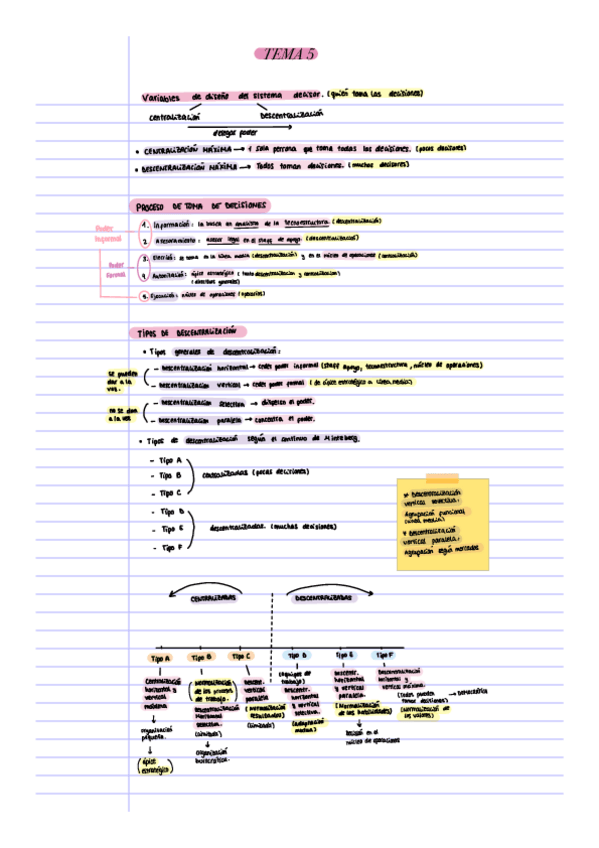 TEMA 5
Variables de diseño del sistema decisor. (quien toma las decisiones)
Centralización Descentralización
delegar poder
• CENTRALIZACIÓN MÁXIMA → 1 sola persona que toma todas las decisiones. (pocos decisores)
• DESCENTRALIZACIÓN MÁXIMA → Todos toman decisiones. (muchos decisores)
PROCESO DE TOMA DE DECISIONES
Poder informal
1. Información: la busca en analistas de la tecnoestructura. (descentralización)
2. Asesoramiento: asesor legal en el staff de apoyo. (descentralización)
Poder formal
3. Elección: se toma en la línea media (descentralización) y en el núcleo de operaciones (centralización)
4. Autorización: ápice estratégico (tanto descentralización y centralización)
(directores generales)
5. Ejecución: núcleo de operaciones (operarios)
TIPOS DE DESCENTRALIZACIÓN
• Tipos generales de descentralización:
se pueden dar a la vez.
- Descentralización horizontal → ceder poder informal (staff apoyo, tecnoestructura, núcleo de operaciones)
- Descentralización vertical → ceder poder formal (de ápice estratégico a línea media)
no se dan a la vez
- Descentralización selectiva → dispersa el poder.
- Descentralización paralela → concentra el poder.
• Tipos de descentralización según el continuo de Mintzberg.
- Tipo A
- Tipo B centralizadas (pocas decisiones)
- Tipo C
- Tipo D
- Tipo E descentralizadas (muchas decisiones)
- Tipo F
* Descentralización
vertical selectiva:
Agrupación funcional
(línea media)
* Descentralización
vertical paralela:
Agrupación según mercados
CENTRALIZADAS DESCENTRALIZADAS
Tipo A Tipo B Tipo C Tipo D Tipo E Tipo F
Centralización
horizontal y
vertical
máxima
↓
organización
pequeña.
↓
(ápice
estratégico)
(Normalización
de los procesos
de trabajo.)
Descentralización
horizontal
selectiva.
(Limitada)
↓
organización
burocrática.
Descentr.
vertical
paralela
(Normalización
resultados)
(Limitada)
(equipos de
trabajo)
Descentr.
horizontal
y vertical
selectiva.
(Adaptación
mutua)
Descentr.
horizontal
y vertical
paralela.
(Normalización
de las habilidades)
↓
Decisión en el
núcleo de operaciones
Descentralización
horizontal y
vertical máxima.
(Todos pueden
tomar decisiones) → Democrática
(Normalización de
los valores)